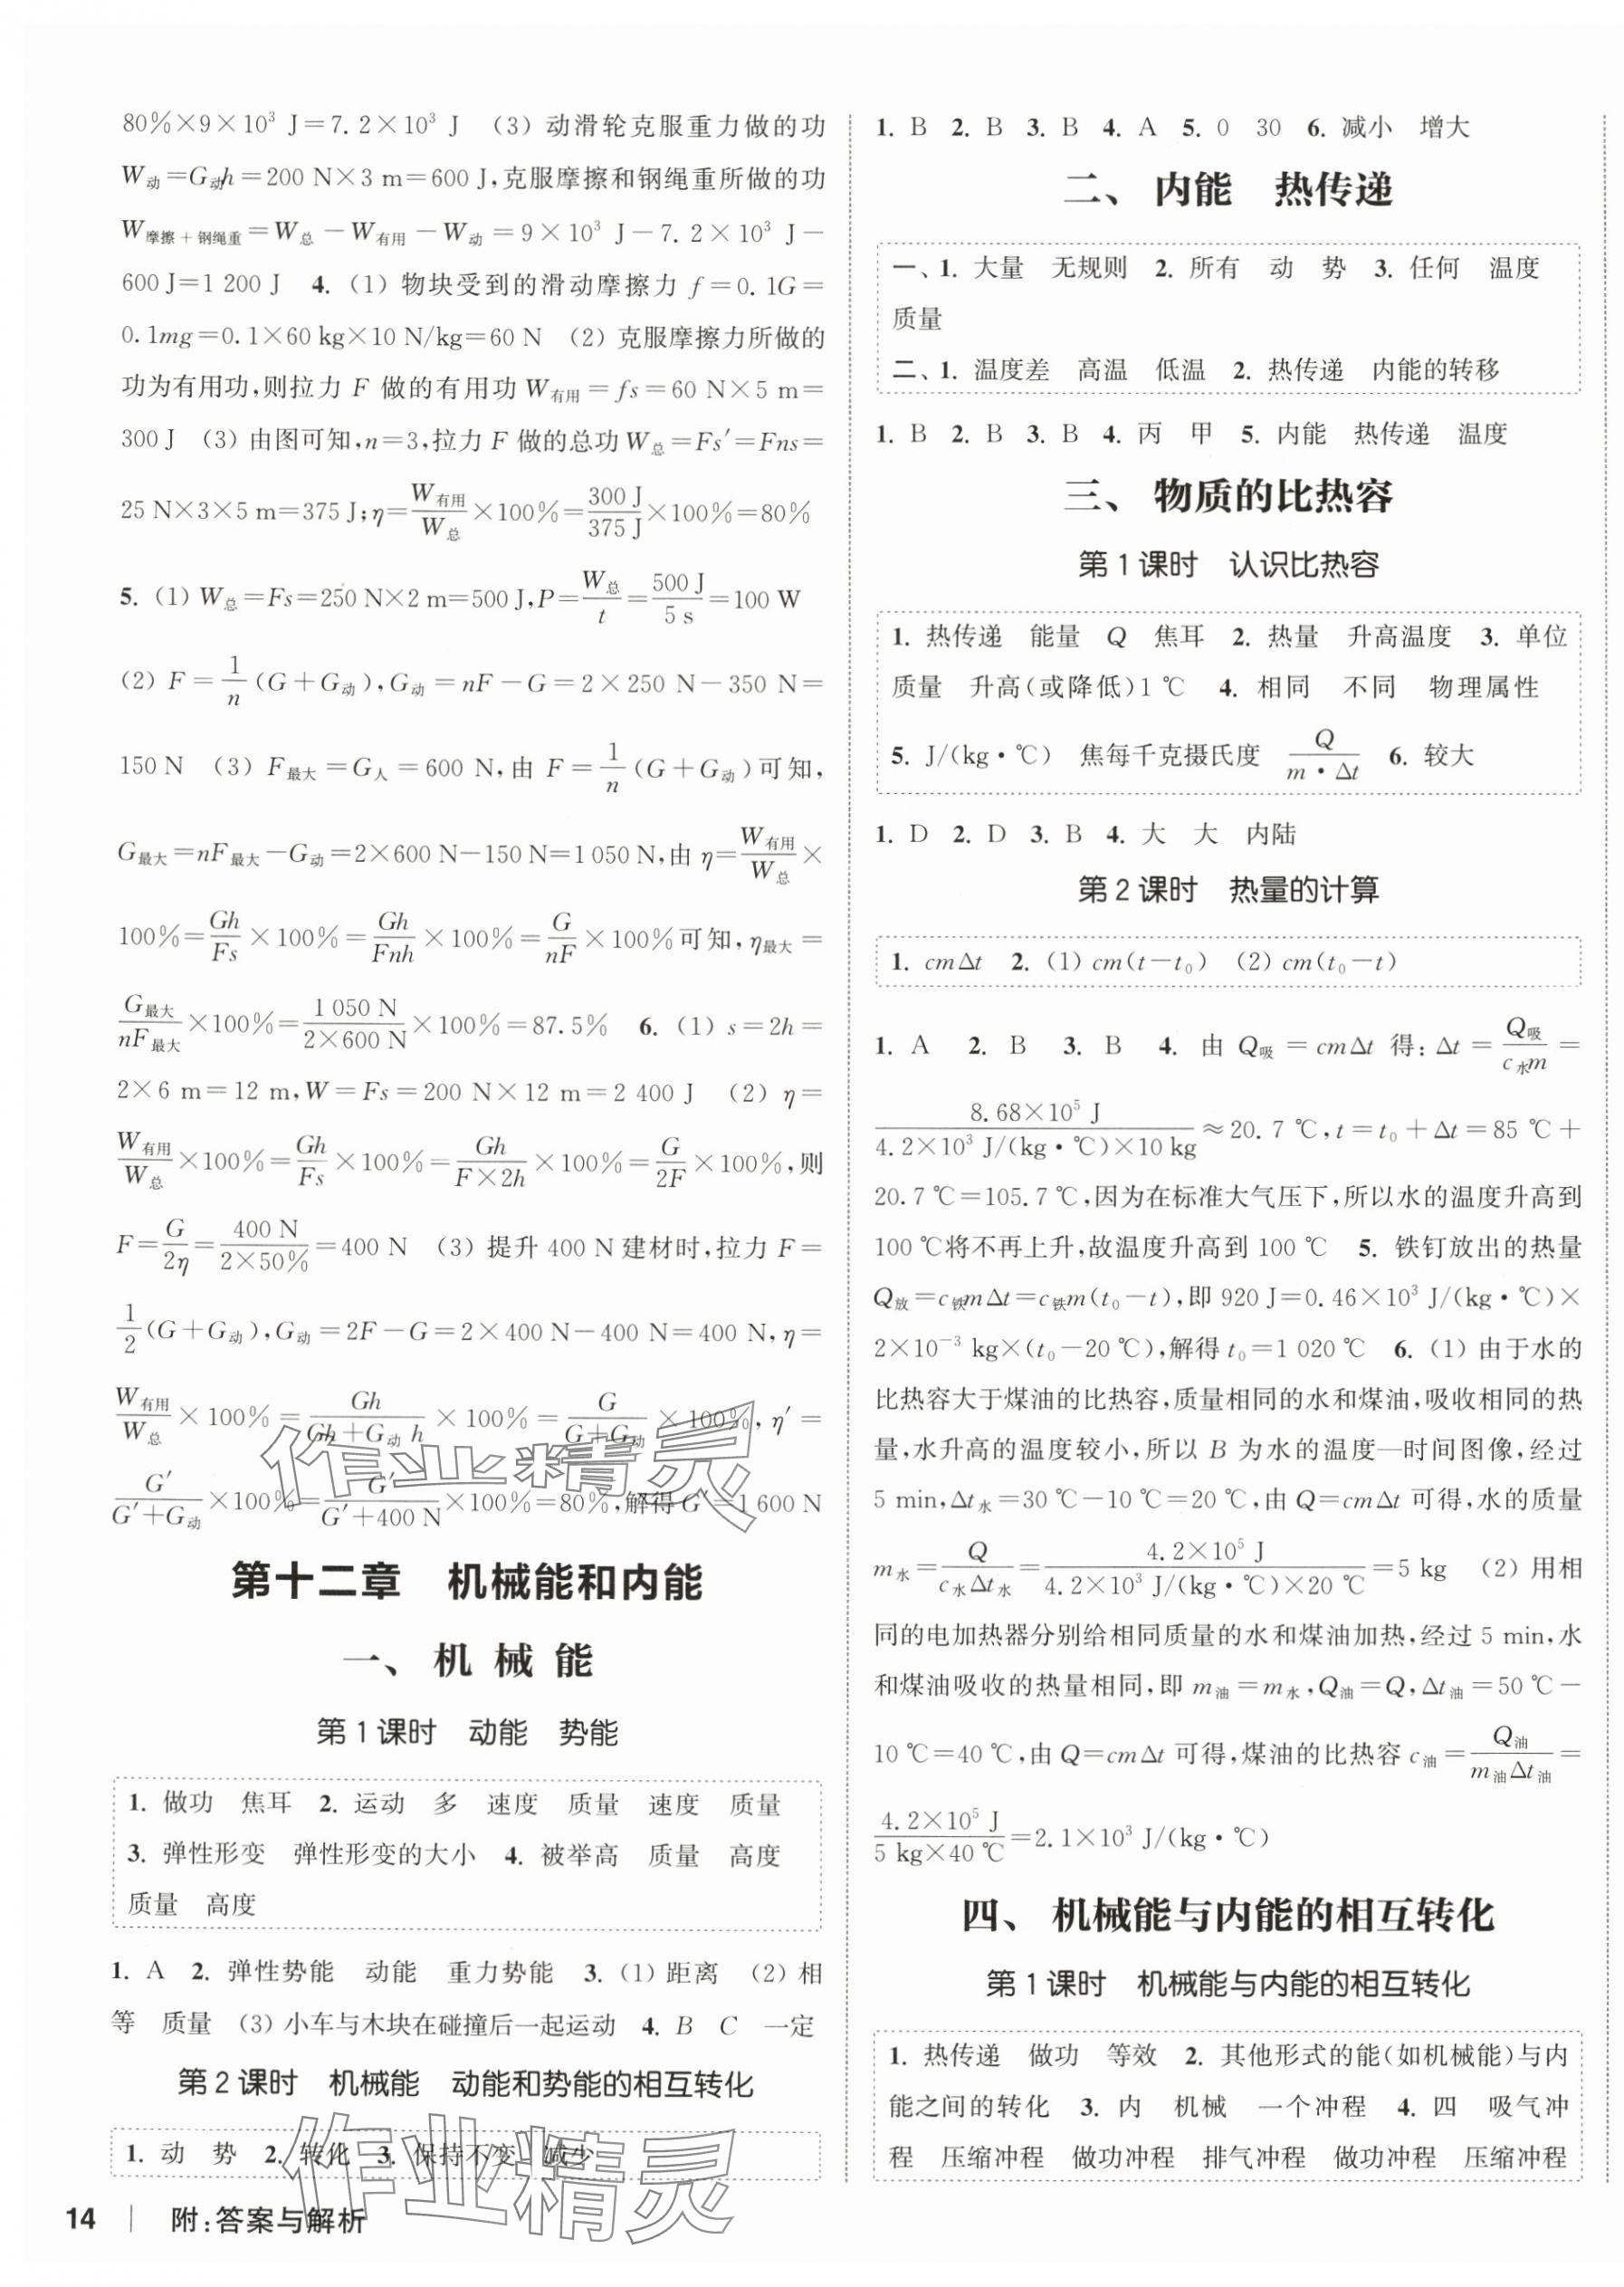 80%×9×10³ J=7.2×10³ J (3) 动滑轮克服重力做的功
W动=G动h=200 N×3 m=600 J,克服摩擦和钢绳重所做的功
W摩擦+钢绳重=W总-W有用-W动=9×10³ J-7.2×10³ J-
600 J=1 200 J 4. (1) 物块受到的滑动摩擦力 f=0.1G=
0.1mg=0.1×60 kg×10 N/kg=60 N (2) 克服摩擦力所做的
功为有用功,则拉力 F 做的有用功 W有用=fs=60 N×5 m=
300 J (3) 由图可知,n=3,拉力 F 做的总功 W总=Fs′=Fns=
25 N×3×5 m=375 J;η=W有用/W总×100%=300 J/375 J×100%=80%
5. (1) W总=Fs=250 N×2 m=500 J,P=W总/t=500 J/5 s=100 W
(2) F=1/n(G+G动),G动=nF-G=2×250 N-350 N=
150 N (3) F最大=G人=600 N,由 F=1/n(G+G动)可知,
G最大=nF最大-G动=2×600 N-150 N=1 050 N,由 η=W有用/W总×
100%=Gh/Fs×100%=Gh/Fnh×100%=G/nF×100%可知,η最大=
G最大/nF最大×100%=1 050 N/2×600 N×100%=87.5% 6. (1) s=2h=
2×6 m=12 m,W=Fs=200 N×12 m=2 400 J (2) η=
W有用/W总×100%=Gh/Fs×100%=Gh/F×2h×100%=G/2F×100%,则
F=G/2η=400 N/2×50%=400 N (3) 提升 400 N建材时,拉力 F=
1/2(G+G动),G动=2F-G=2×400 N-400 N=400 N,η=
W有用/W总×100%=Gh/Gh+G动h×100%=G/G+G动×100%,η′=
G′/G′+G动×100%=G′/G′+400 N×100%=80%,解得 G′=1 600 N
第十二章 机械能和内能
一、机械能
第1课时 动能 势能
1. 做功 焦耳 2. 运动 多 速度 质量 速度 质量
3. 弹性形变 弹性形变的大小 4. 被举高 质量 高度
质量 高度
1. A 2. 弹性势能 动能 重力势能 3. (1) 距离 (2) 相
等 质量 (3) 小车与木块在碰撞后一起运动 4. B C 一定
第2课时 机械能 动能和势能的相互转化
1. 动 势 2. 转化 3. 保持不变 减少
14 附:答案与解析
1. B 2. B 3. B 4. A 5. 0 30 6. 减小 增大
二、内能 热传递
一、1. 大量 无规则 2. 所有 动 势 3. 任何 温度
质量
二、1. 温度差 高温 低温 2. 热传递 内能的转移
1. B 2. B 3. B 4. 丙 甲 5. 内能 热传递 温度
三、物质的比热容
第1课时 认识比热容
1. 热传递 能量 Q 焦耳 2. 热量 升高温度 3. 单位
质量 升高(或降低)1 ℃ 4. 相同 不同 物理属性
5. J/(kg·℃) 焦每千克摄氏度 Q/m·Δt 6. 较大
1. D 2. D 3. B 4. 大 大 内陆
第2课时 热量的计算
1. cmΔt 2. (1) cm(t-t₀) (2) cm(t₀-t)
1. A 2. B 3. B 4. 由 Q吸=cmΔt 得:Δt=Q吸/c水m=
8.68×10⁵ J/4.2×10³ J/(kg·℃)×10 kg≈20.7 ℃,t=t₀+Δt=85 ℃+
20.7 ℃=105.7 ℃,因为在标准大气压下,所以水的温度升高到
100 ℃将不再上升,故温度升高到 100 ℃ 5. 铁钉放出的热量
Q放=c铁mΔt=c铁m(t₀-t),即 920 J=0.46×10³ J/(kg·℃)×
2×10⁻³ kg×(t₀-20 ℃),解得 t₀=1 020 ℃ 6. (1) 由于水的
比热容大于煤油的比热容,质量相同的水和煤油,吸收相同的热
量,水升高的温度较小,所以 B 为水的温度—时间图像,经过
5 min,Δt水=30 ℃-10 ℃=20 ℃,由 Q=cmΔt 可得,水的质量
m水=Q/c水Δt水=4.2×10⁵ J/4.2×10³ J/(kg·℃)×20 ℃=5 kg (2) 用相
同的电加热器分别给相同质量的水和煤油加热,经过 5 min,水
和煤油吸收的热量相同,即 m油=m水,Q油=Q,Δt油=50 ℃-
10 ℃=40 ℃,由 Q=cmΔt 可得,煤油的比热容 c油=Q油/m油Δt油=
4.2×10⁵ J/5 kg×40 ℃=2.1×10³ J/(kg·℃)
四、机械能与内能的相互转化
第1课时 机械能与内能的相互转化
1. 热传递 做功 等效 2. 其他形式的能(如机械能)与内
能之间的转化 3. 内 机械 一个冲程 4. 四 吸气冲
程 压缩冲程 做功冲程 排气冲程 做功冲程 压缩冲程
作业精灵
作业精灵